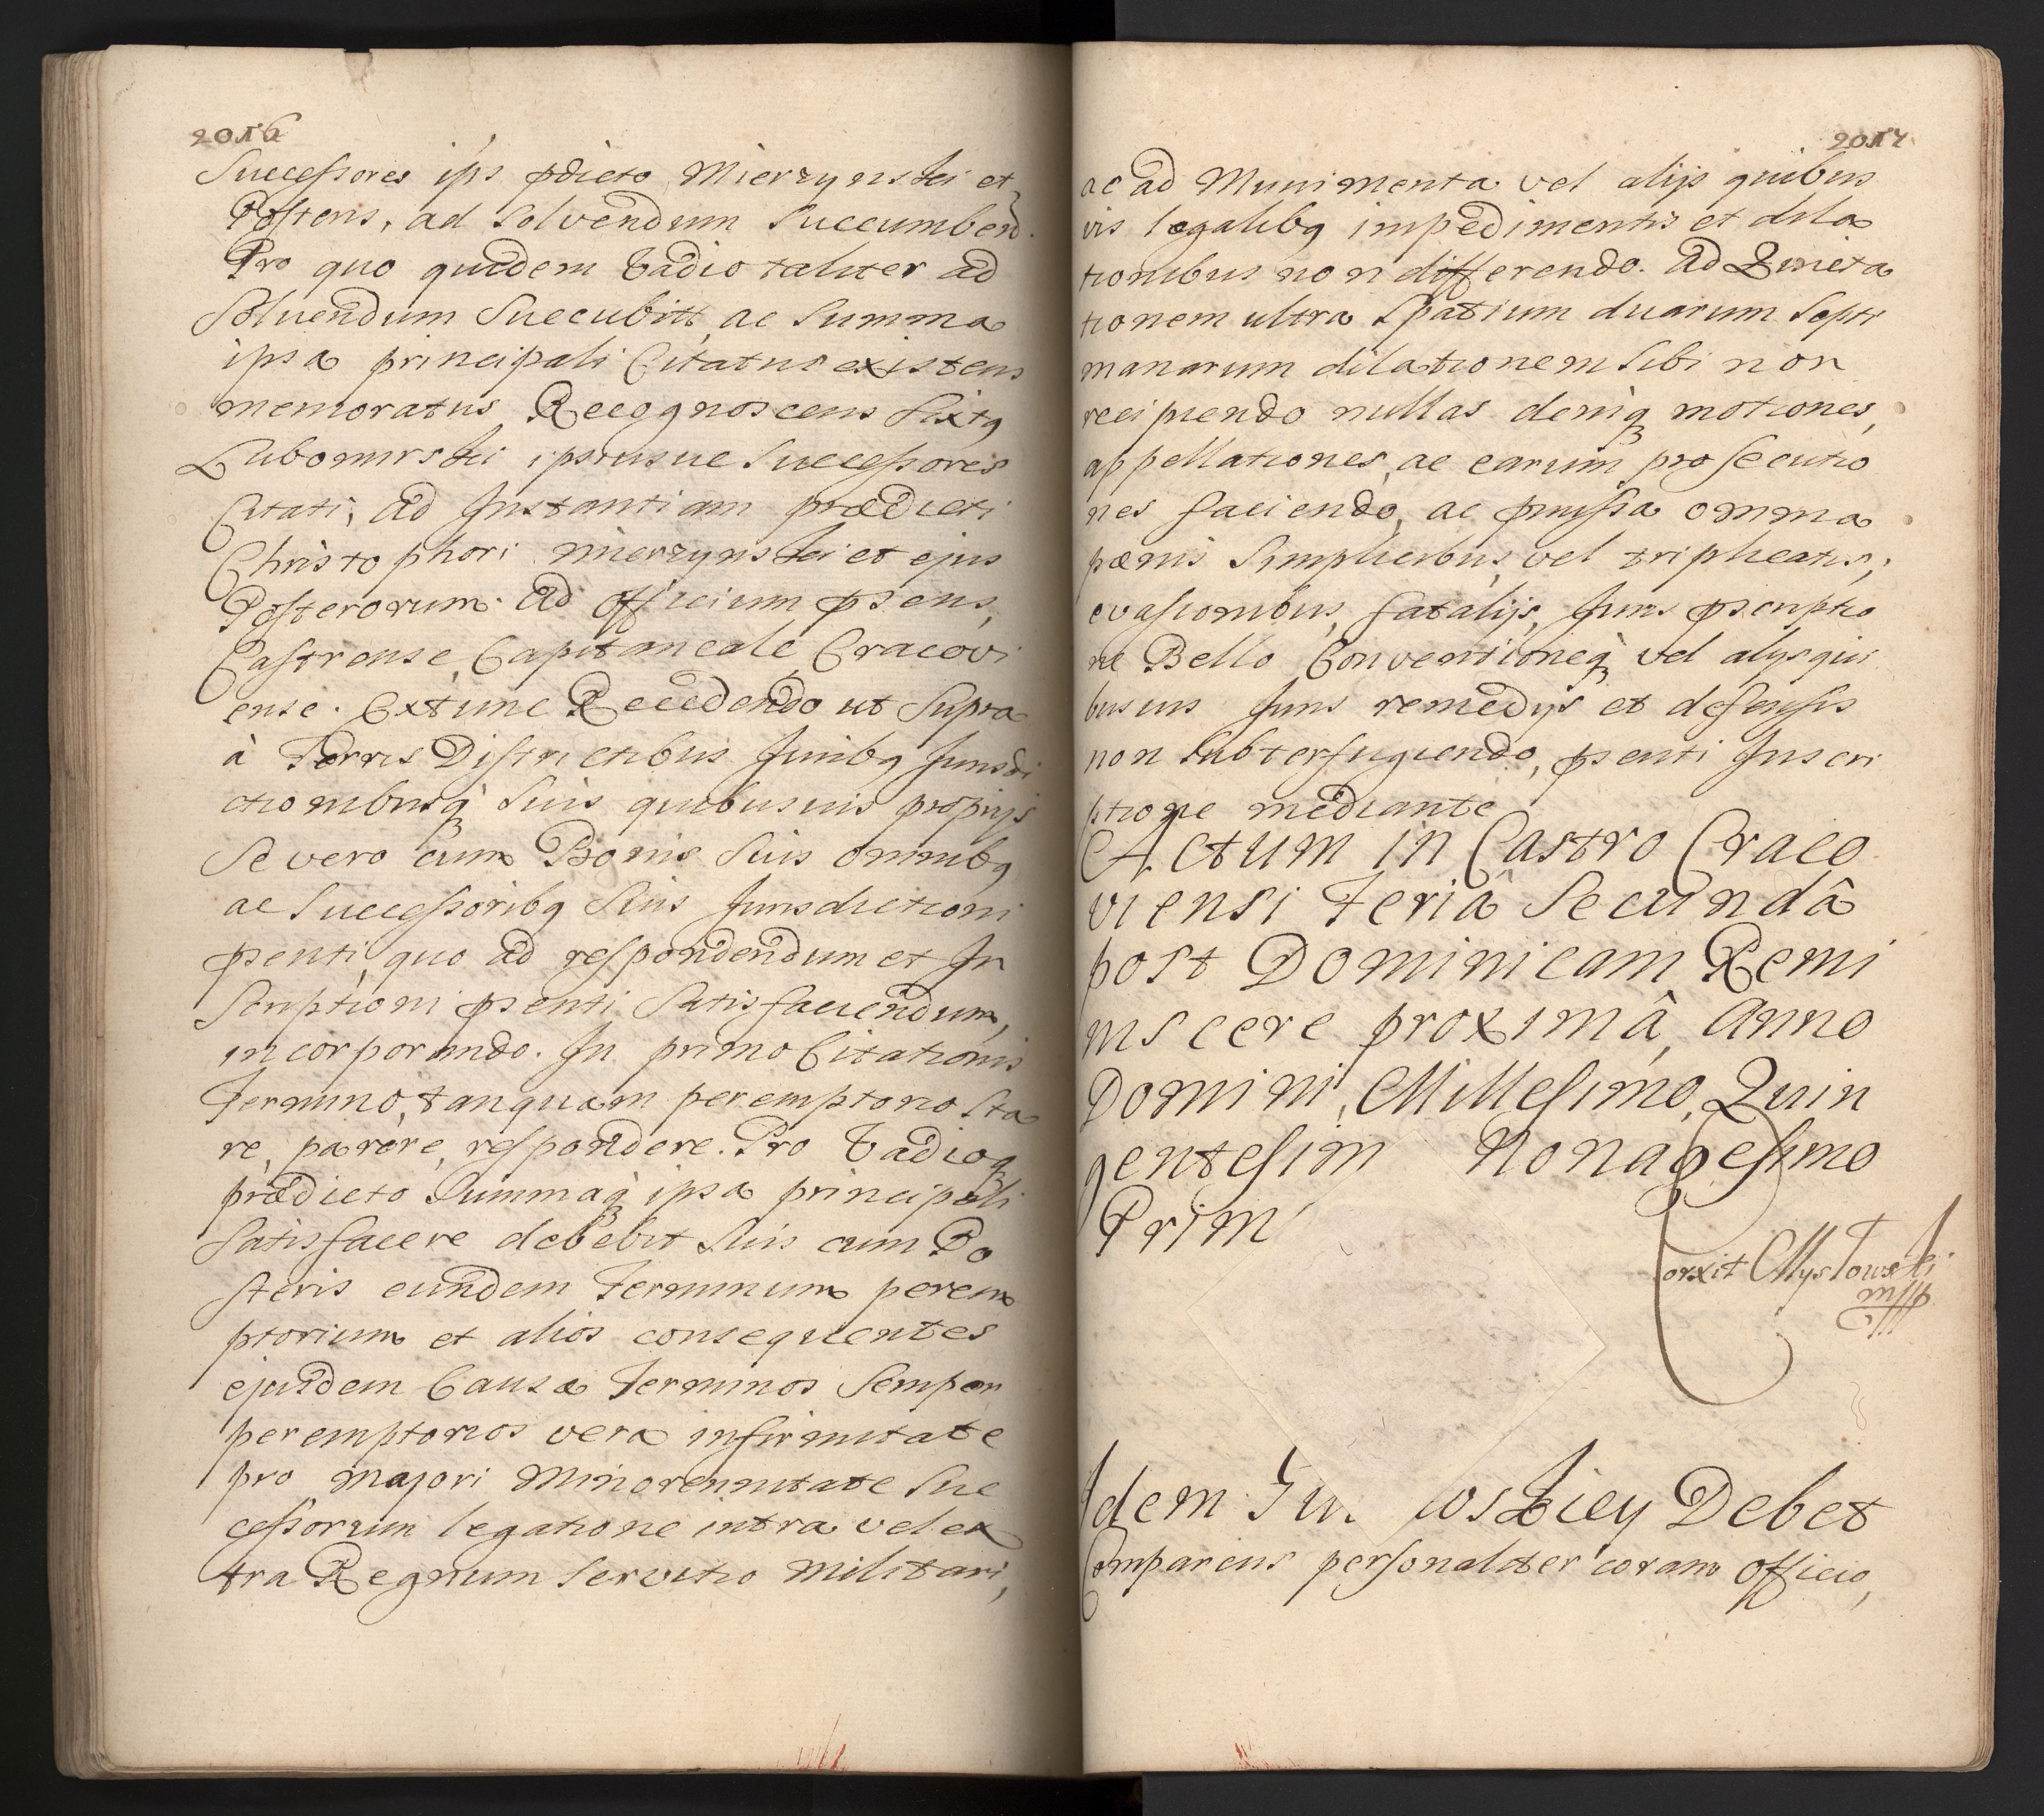 2016
Successores ips pdicto Mierzynski et
Posteris, ad Solvendum Succumbend.
Pro quo quidem Vadio taliter ad
Soluendum Succubitt ac Summa
ipsa principali Citatus existens
memoratus Recognoscens Sixtq
Lubomirski ipsiusue Successores
Citati, ad Instantiam prædicti
Christophori Mierzynski et ejus
Posterorum ad officium psens,
Castrense, Capitaneale Cracovi
ense. Extunc Recedendo ut Supra
à Terris Districtibus Juribq Jurisdi
ctionibusq Suis quibusuis propijs
Se vero cum Bonis Suis omnibq
ac Successoribq Suis Jurisdictioni
psenti, quo ad respondendum et In
scriptioni psenti Satisfaciendum,
incorporando. In primo Citationis
Termino, tanquam peremptorio Sta
re, parere, respondere. Pro Vadioq
prædicto Summaq ipsa principali
Satisfacere debebit Suis cum Po
steris eundem Terminum perem
ptorium et alios consequentes
ejusdem Causæ Terminos Semper
peremptorios vera infirmitate
pro majori Minorennitate Suc
cessorum legatione intra vel ex
tra Regnum Servitio Militari,
2017
ac ad Munimenta vel alijs quibus
vis legalibq impedimentis et dila
tionibus non differendo. Ad Quieta
tionem ultra Spatium duarum Septi
manarum dilationem Sibi non
recipiendo nullas deniq motiones,
appellationes, ac earum prosecutio
nes faciendo, ac pmissa omnia
pænis Simplicibus, vel triplicatis,
evasionibus, fatalijs, Juris pscriptio
ne Bello Conventioneq vel alijs qui
busuis Juris remedijs et defensis
non Subterfugiendo, psenti Inscri
ptione mediante
Actum in Castro Craco
viensi Feriâ Secundâ
post Dominicam Remi
niscere proximâ, Anno
Domini, Millesimo, Quin
gentesim Nonagesimo
Prim
Corxit Myskowski
mpp
Idem Debet
Comparens personaliter coram Officio,